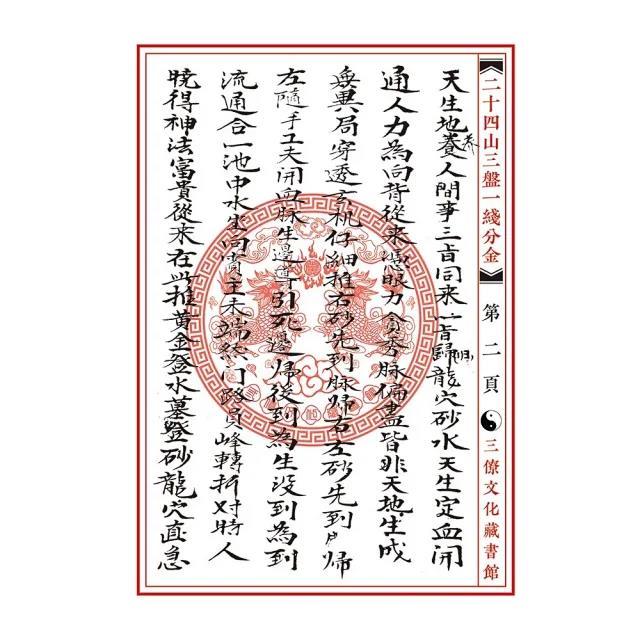 《二十四山三盤一綫分金》 第二頁 三僚文化藏書館
天生地養人間事三旨同来一旨歸龍穴砂水天生定血開
通人力為向背從来憑眼力貪秀脉偏盡皆非天地生成
無異局穿透玄机仔細推右砂先到脉歸右左砂先到歸
左隨手工夫開血脉生邊導引死邊歸後到為生没到為到
流通合一池中水坐向賓主未端然门路貟峰轉折对時人
曉得神法富貴從来在此推黄金登水墓登砂龍穴直急